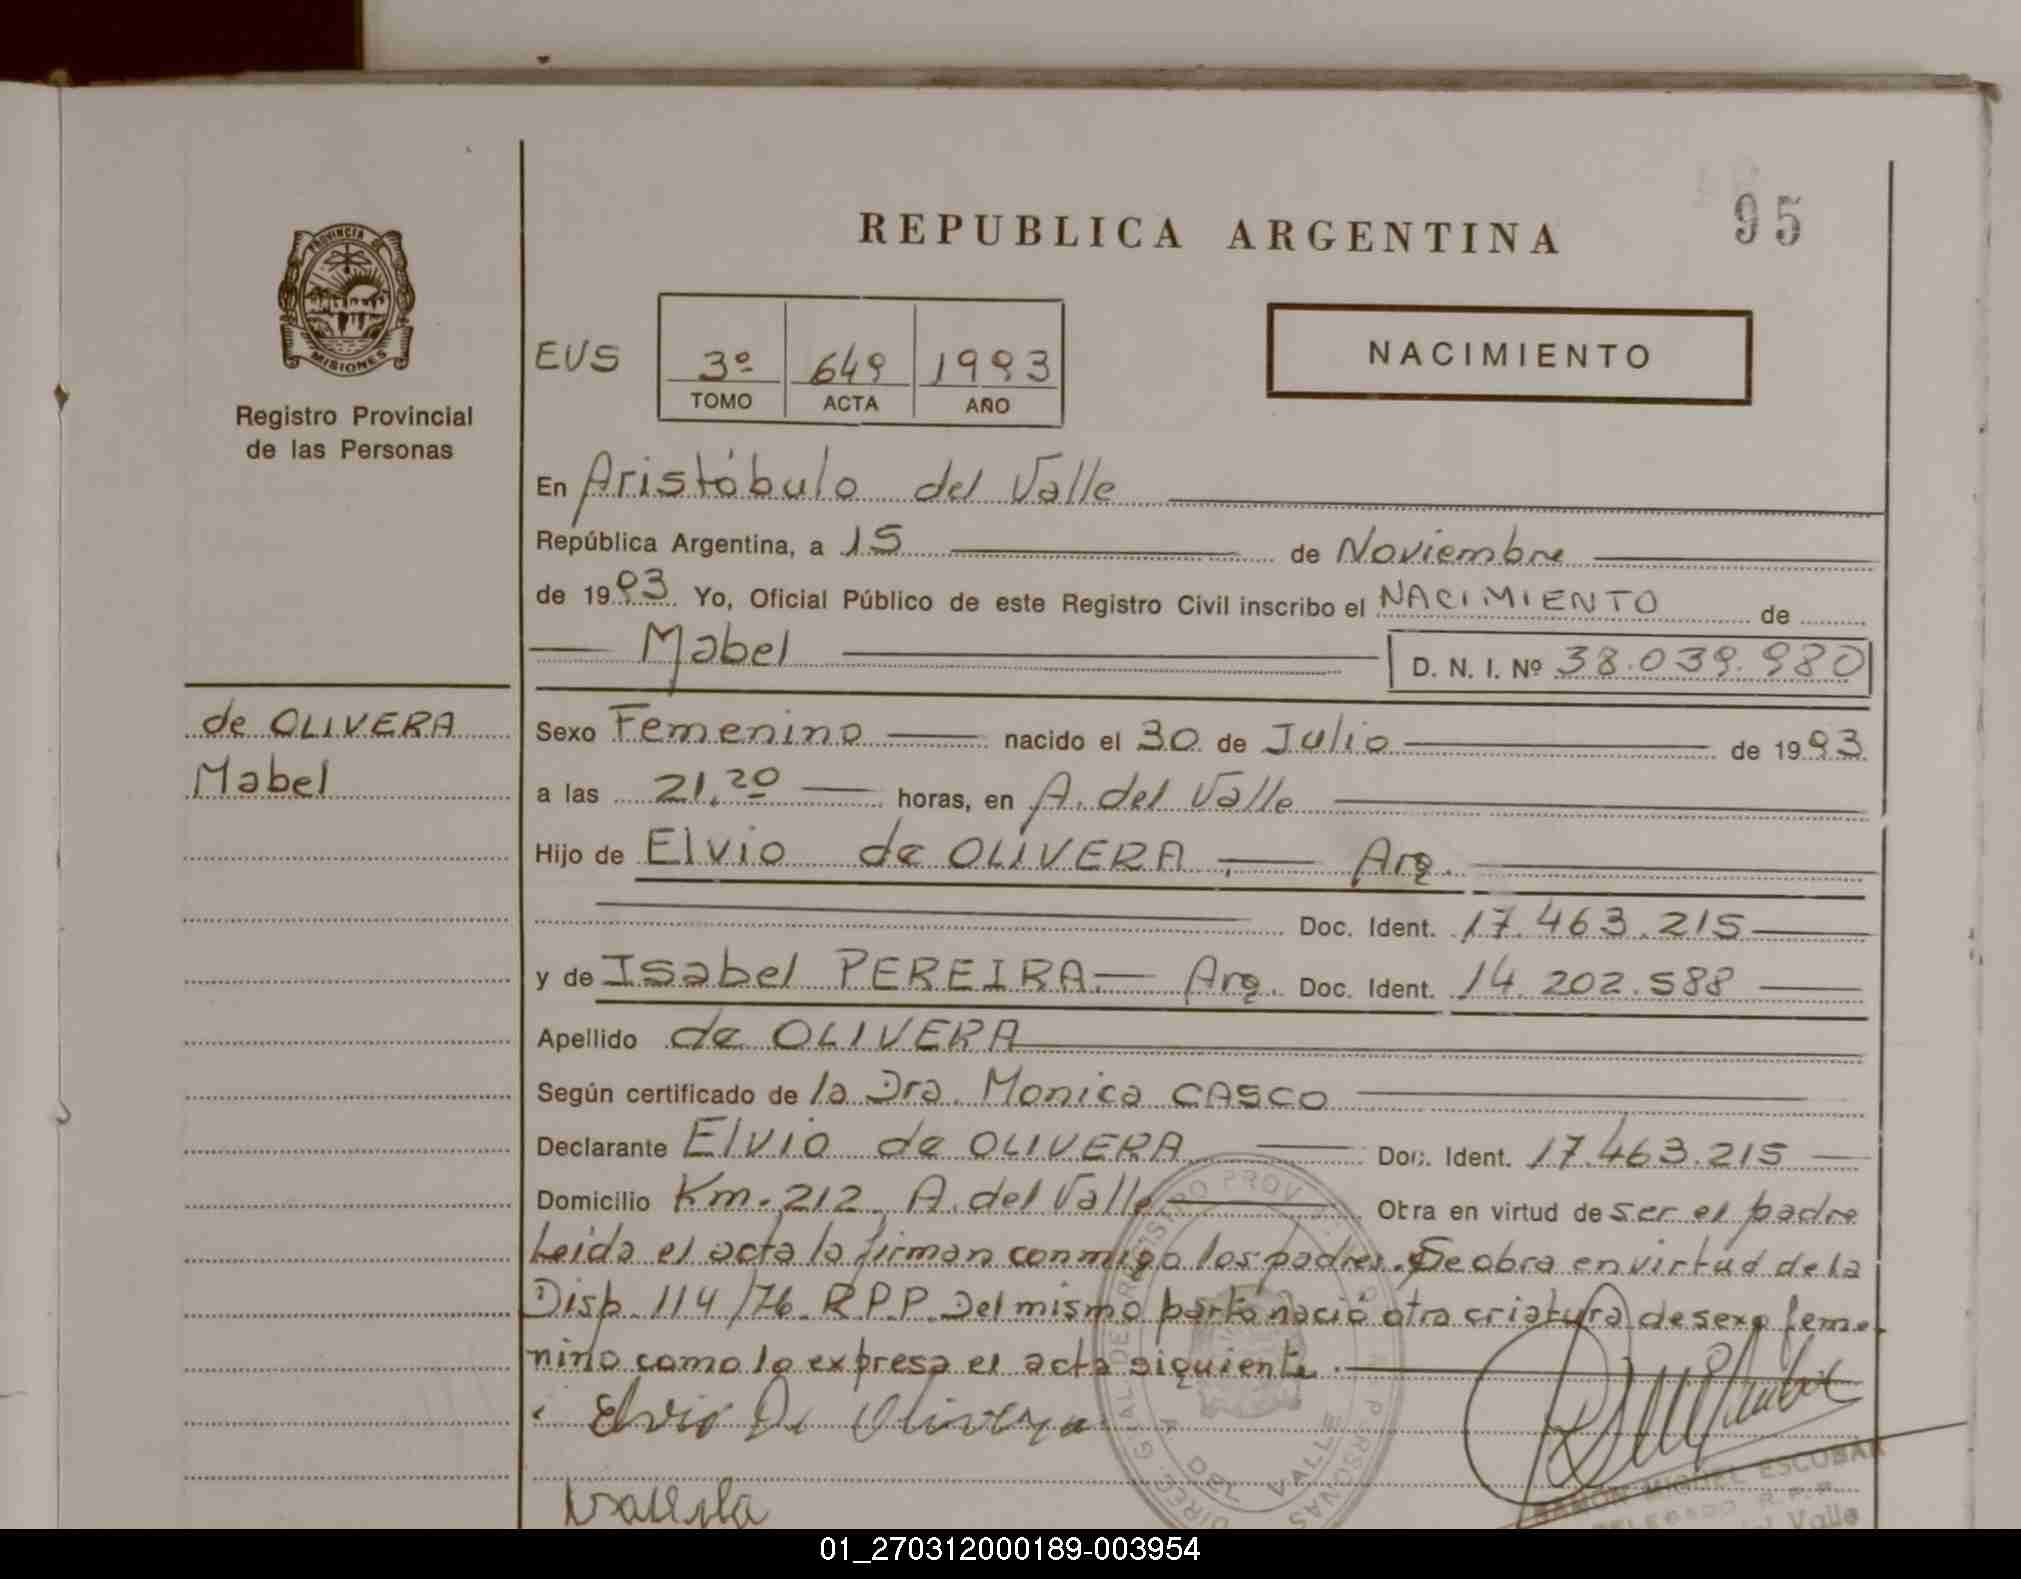 95
REPUBLICA ARGENTINA
PROVINCIA DE
MISIONES
Registro Provincial
de las Personas
EUS
3º 649 1993
TOMO ACTA AÑO
NACIMIENTO
En Aristóbulo del Valle
República Argentina, a 15 de Noviembre
de 1993 Yo, Oficial Público de este Registro Civil inscribo el NACIMIENTO de
Mabel D. N. I. Nº 38.039.980
de OLIVERA
Mabel
Sexo Femenino nacido el 30 de Julio de 1993
a las 21,20 horas, en A. del Valle
Hijo de Elvio de OLIVERA, Arg.
Doc. Ident. 17.463.215
y de Isabel PEREIRA Arg. Doc. Ident. 14.202.588
Apellido de OLIVERA
Según certificado de la Dra. Monica CASCO
Declarante Elvio de OLIVERA Doc. Ident. 17.463.215
Domicilio Km. 212 A. del Valle Obra en virtud de ser el padre
Leida el acta la firman conmigo los padres. Se obra en virtud de la
Disp. 114/76 R.P.P. Del mismo parto nació otra criatura de sexo feme-
nino como lo expresa el acta siguiente.
Elvio De Olivera
RAMON MIGUEL ESCOBAR
DELEGADO R.P.P.
Valle
01_270312000189-003954